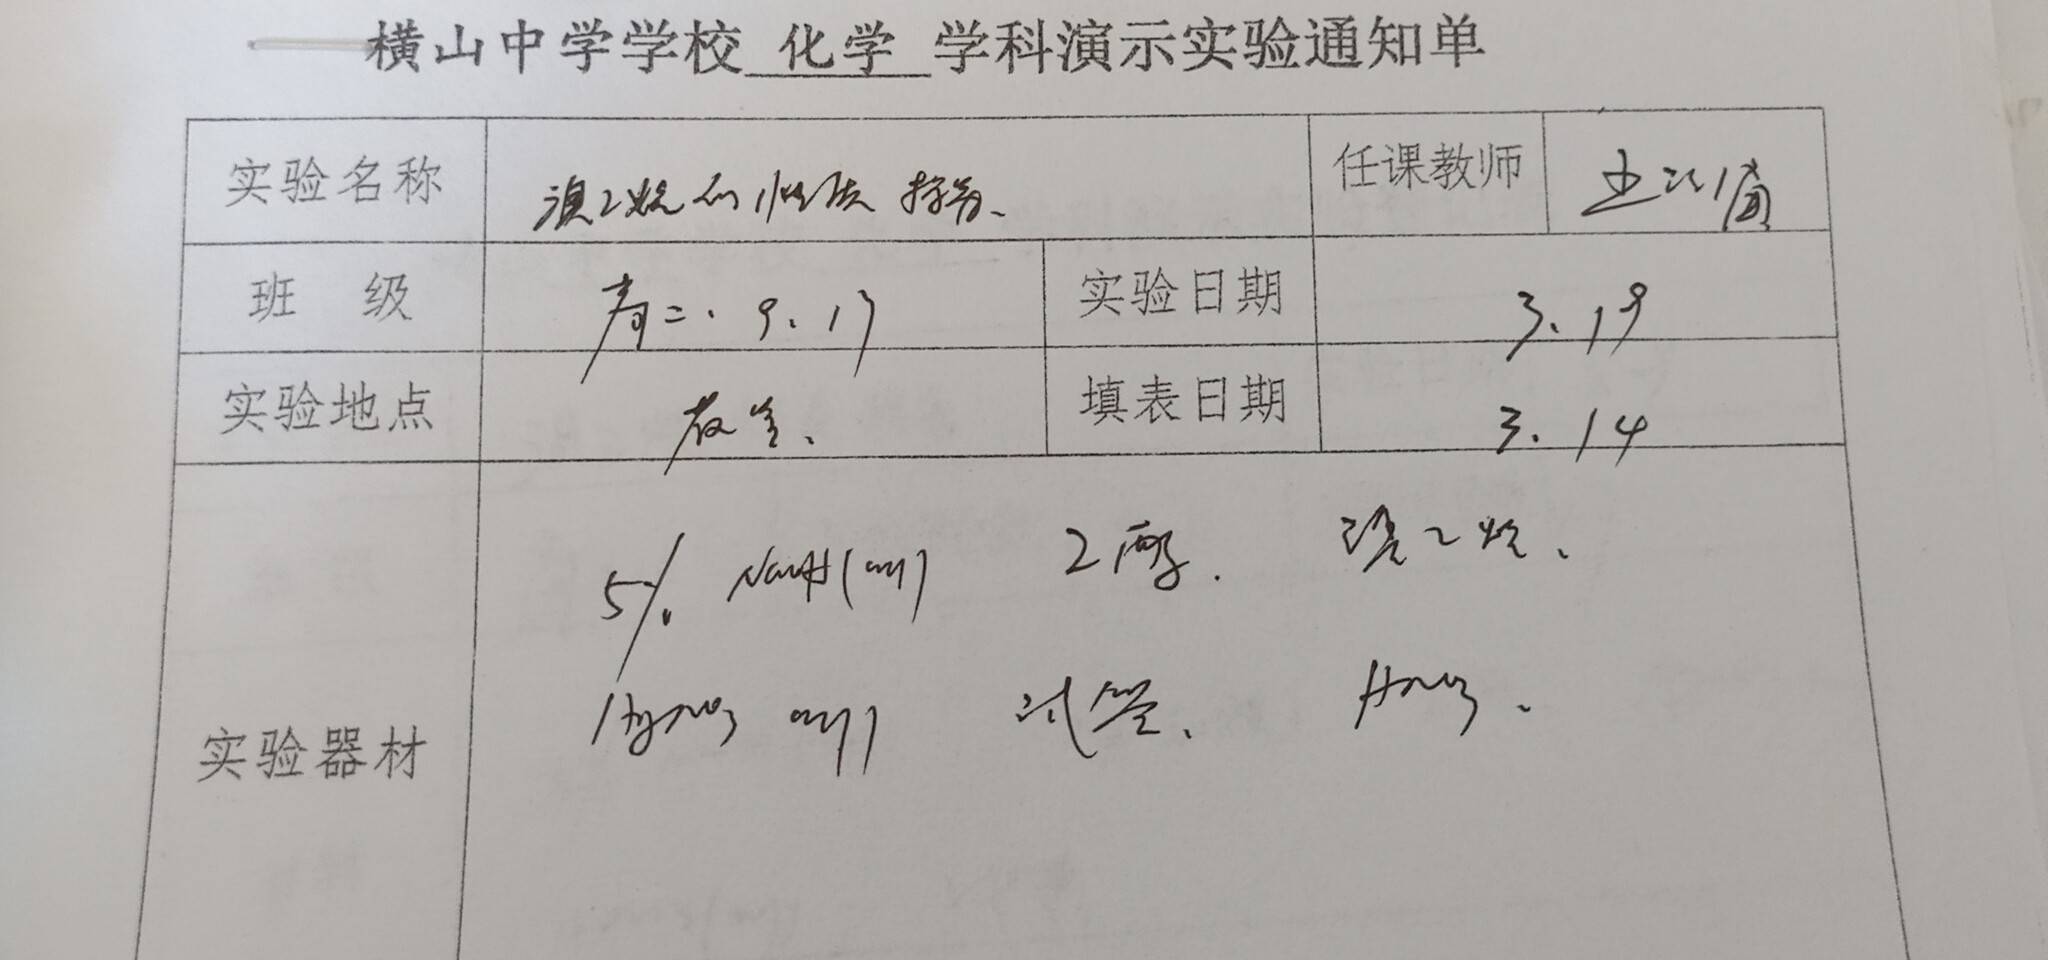 横山中学学校 化学 学科演示实验通知单
实验名称 溴乙烷的性质探究、 任课教师
班 级 高二. 9. 17 实验日期 3. 19
实验地点 教室、 填表日期 3. 14
5% NaOH(aq) 乙醇. 溴乙烷、
AgNO3 aq) 试管、 HNO3、
实验器材